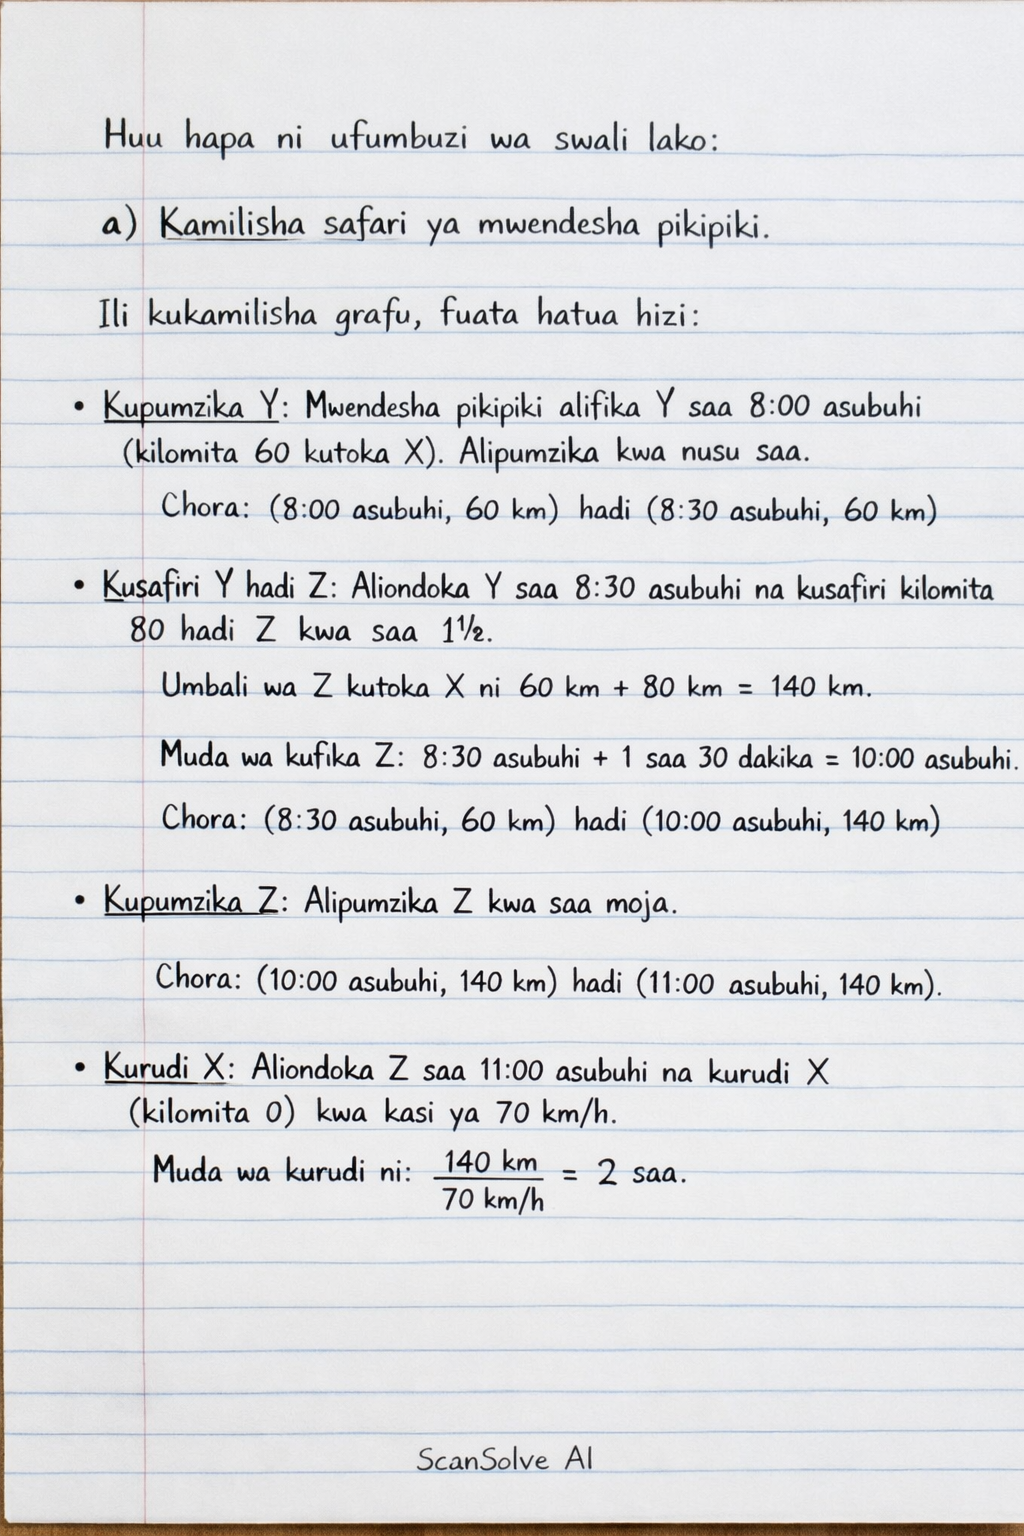 Huu hapa ni ufumbuzi wa swali lako:
a) Kamilisha safari ya mwendesha pikipiki.
Ili kukamilisha grafu, fuata hatua hizi:
• Kupumzika Y: Mwendesha pikipiki alifika Y saa 8:00 asubuhi
(kilomita 60 kutoka X). Alipumzika kwa nusu saa.
Chora: (8:00 asubuhi, 60 km) hadi (8:30 asubuhi, 60 km)
• Kusafiri Y hadi Z: Aliondoka Y saa 8:30 asubuhi na kusafiri kilomita
80 hadi Z kwa saa 1½.
Umbali wa Z kutoka X ni 60 km + 80 km = 140 km.
Muda wa kufika Z: 8:30 asubuhi + 1 saa 30 dakika = 10:00 asubuhi.
Chora: (8:30 asubuhi, 60 km) hadi (10:00 asubuhi, 140 km)
• Kupumzika Z: Alipumzika Z kwa saa moja.
Chora: (10:00 asubuhi, 140 km) hadi (11:00 asubuhi, 140 km).
• Kurudi X: Aliondoka Z saa 11:00 asubuhi na kurudi X
(kilomita 0) kwa kasi ya 70 km/h.
Muda wa kurudi ni: 140 km / 70 km/h = 2 saa.
ScanSolve AI